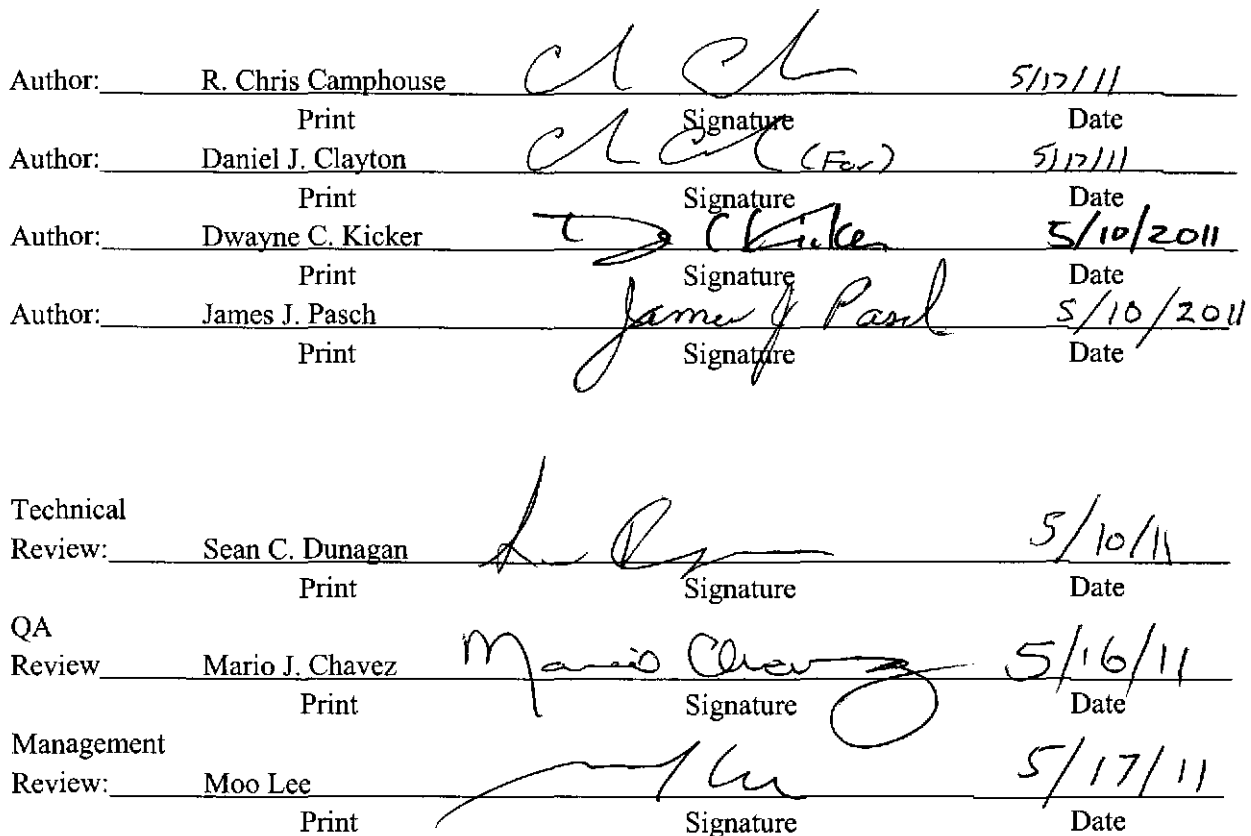 Author: R. Chris Camphouse 5/17/11
Print Signature Date
Author: Daniel J. Clayton (For) 5/17/11
Print Signature Date
Author: Dwayne C. Kicker D C Kicker 5/10/2011
Print Signature Date
Author: James J. Pasch James J Pasch 5/10/2011
Print Signature Date
Technical
Review: Sean C. Dunagan 5/10/11
Print Signature Date
QA
Review Mario J. Chavez Mario Chavez 5/16/11
Print Signature Date
Management
Review: Moo Lee 5/17/11
Print Signature Date